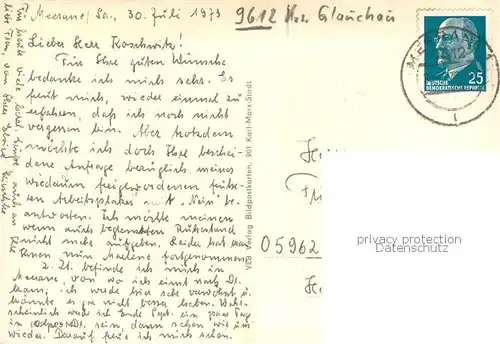 Meerane/Sa., 30. Juli 1973
9612 Krs. Glauchau
Lieber Herr Koschwitz!
Für Ihre guten Wünsche
bedanke ich mich sehr. Es
freut mich, wieder einmal zu
erfahren, daß ich noch nicht
vergessen bin. Aber trotzdem
möchte ich doch Ihre beschei-
dene Anfrage bezüglich meines
wiederum freigewordenen frühe-
ren Arbeitsplatzes mit "Nein" be-
antworten. Ich möchte meinen
wenn auch begrenzten Ruhestand
nicht mehr aufgeben. Leider hat man
Ihnen nun Marlene fortgenommen
z. Zt. befinde ich mich in
Meerane, von wo ich einst nach
kam; ich werde hier sehr verwöhnt u.
könnte es gar nicht besser haben. Wahr-
scheinlich werde ich Ende Sept. ein paar Tag
in sein, dann sehen wir uns
wieder. Darauf freue ich mich schon.
Für heute viele herzl. Grüße auch an Ihre
liebe Frau, von Ihrer
VEB Verlag Bildpostkarten, 901 Karl-Marx-Stadt
MEERANE
DEUTSCHE
DEMOKRATISCHE REPUBLIK
25
05962
privacy protection
Datenschutz